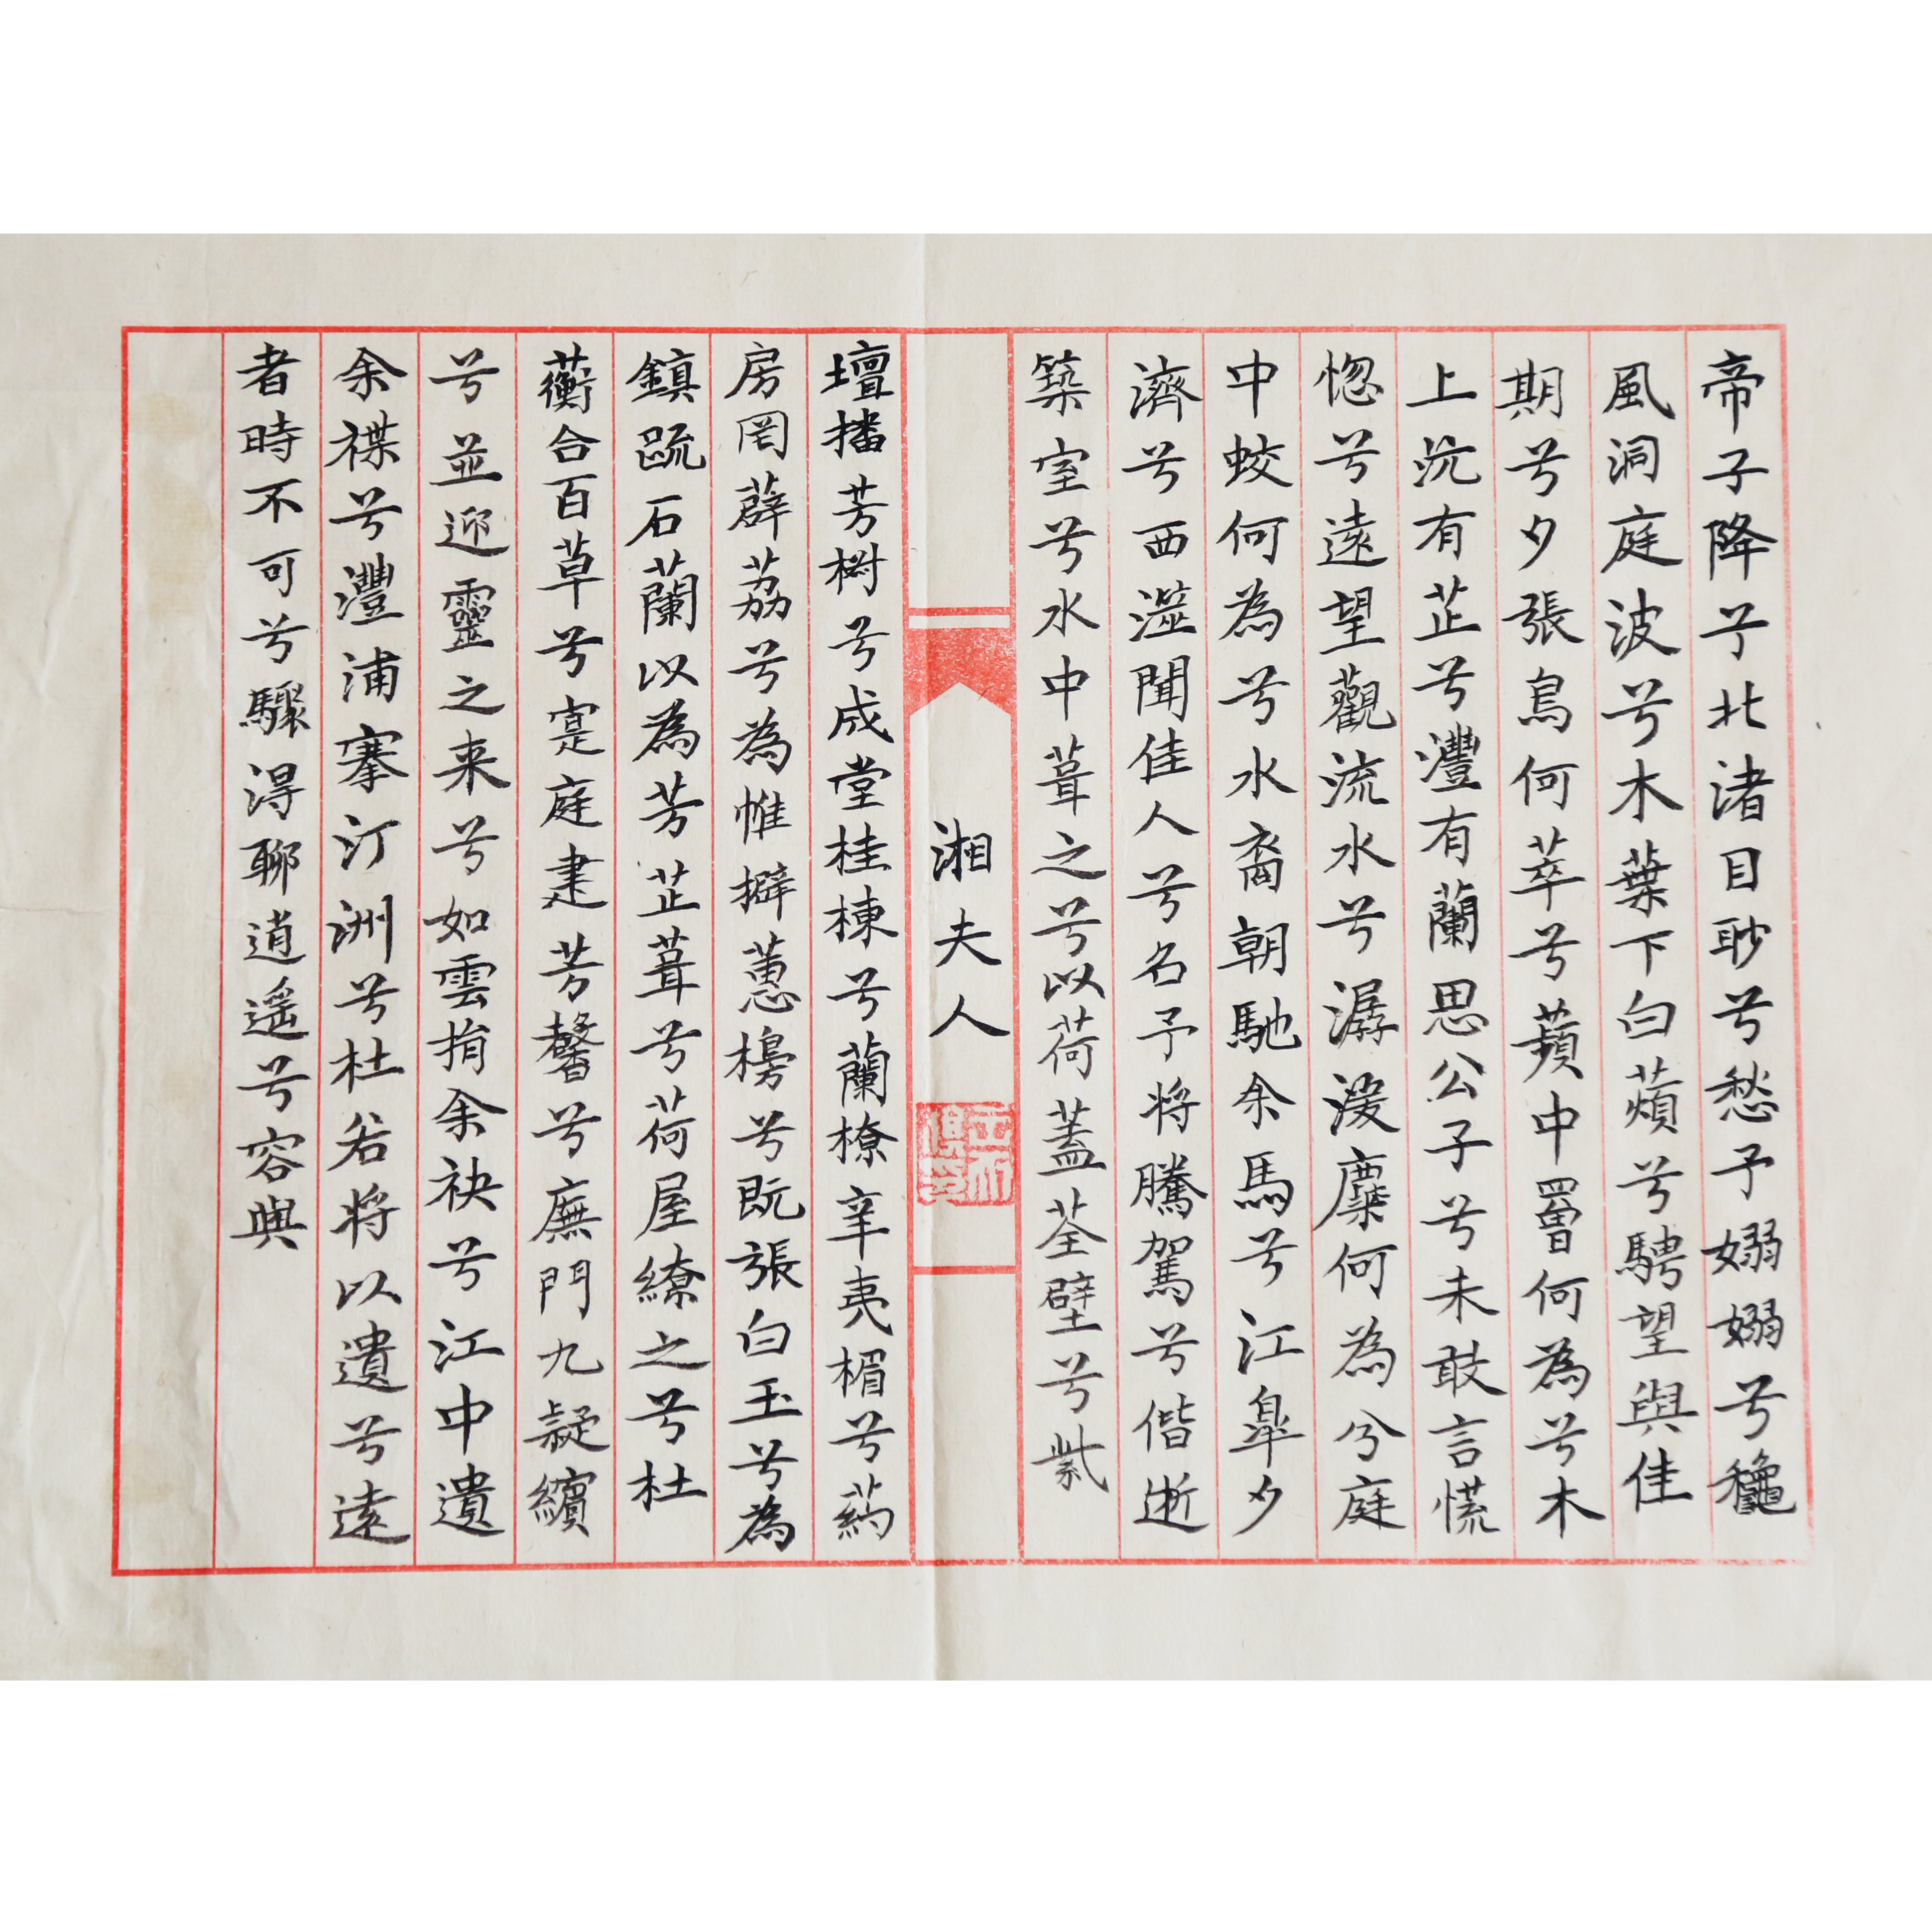 帝子降予北渚目眇兮愁予嫋嫋兮龝
風洞庭波兮木葉下白薠兮騁望與佳
期兮夕張鳥何萃兮蘋中罾何為兮木
上沅有芷兮灃有蘭思公子兮未敢言慌
惚兮遠望觀流水兮潺湲麋何為兮庭
中蛟何為兮水裔朝馳余馬兮江皐夕
濟兮西澨聞佳人兮名予將騰駕兮偕逝
築室兮水中葺之兮以荷蓋荃壁兮紫
湘夫人
壇播芳椒兮成堂桂棟兮蘭橑辛夷楣兮葯
房罔薜荔兮為惟擗蕙櫋兮既張白玉兮為
鎮疏石蘭以為芳芷葺兮荷屋繚之兮杜
蘅合百草兮寔庭建芳馨兮廡門九疑繽
兮並迎靈之来兮如雲捐余袂兮江中遺
余褋兮灃浦搴汀洲兮杜若將以遺兮遠
者時不可兮驟淂聊逍遥兮容與